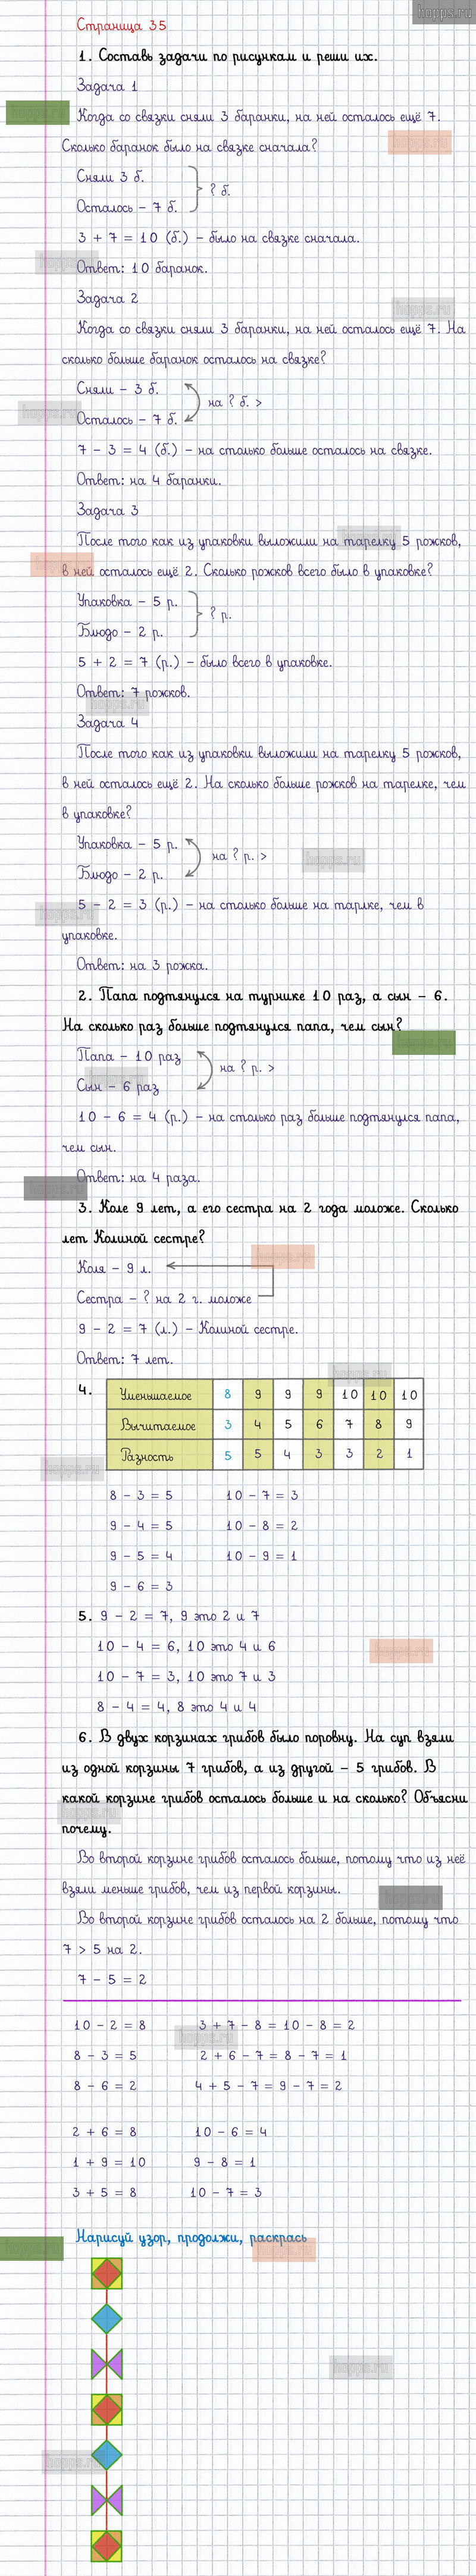 hopps.ru
Страница 35
1. Составь задачи по рисункам и реши их.
Задача 1
Когда со связки сняли 3 баранки, на ней осталось ещё 7.
Сколько баранок было на связке сначала?
Сняли 3 б.
? б.
Осталось – 7 б.
3 + 7 = 10 (б.) – было на связке сначала.
Ответ: 10 баранок.
Задача 2
Когда со связки сняли 3 баранки, на ней осталось ещё 7. На
сколько больше баранок осталось на связке?
Сняли – 3 б.
на ? б. >
Осталось – 7 б.
7 – 3 = 4 (б.) – на столько больше осталось на связке.
Ответ: на 4 баранки.
Задача 3
После того как из упаковки выложили на тарелку 5 рожков,
в ней осталось ещё 2. Сколько рожков всего было в упаковке?
Упаковка – 5 р.
? р.
Блюдо – 2 р.
5 + 2 = 7 (р.) – было всего в упаковке.
Ответ: 7 рожков.
Задача 4
После того как из упаковки выложили на тарелку 5 рожков,
в ней осталось ещё 2. На сколько больше рожков на тарелке, чем
в упаковке?
Упаковка – 5 р.
на ? р. >
Блюдо – 2 р.
5 – 2 = 3 (р.) – на столько больше на тарлке, чем в
упаковке.
Ответ: на 3 рожка.
2. Папа подтянулся на турнике 10 раз, а сын – 6.
На сколько раз больше подтянулся папа, чем сын?
Папа – 10 раз
на ? р. >
Сын – 6 раз
10 – 6 = 4 (р.) – на столько раз больше подтянулся папа,
чем сын.
Ответ: на 4 раза.
3. Коле 9 лет, а его сестра на 2 года моложе. Сколько
лет Колиной сестре?
Коля – 9 л.
Сестра – ? на 2 г. моложе
9 – 2 = 7 (л.) – Колиной сестре.
Ответ: 7 лет.
4. Уменьшаемое 8 9 9 9 10 10 10
Вычитаемое 3 4 5 6 7 8 9
Разность 5 5 4 3 3 2 1
8 – 3 = 5 10 – 7 = 3
9 – 4 = 5 10 – 8 = 2
9 – 5 = 4 10 – 9 = 1
9 – 6 = 3
5. 9 – 2 = 7, 9 это 2 и 7
10 – 4 = 6, 10 это 4 и 6
10 – 7 = 3, 10 это 7 и 3
8 – 4 = 4, 8 это 4 и 4
6. В двух корзинах грибов было поровну. На суп взяли
из одной корзины 7 грибов, а из другой – 5 грибов. В
какой корзине грибов осталось больше и на сколько? Объясни
почему.
Во второй корзине грибов осталось больше, потому что из неё
взяли меньше грибов, чем из первой корзины.
Во второй корзине грибов осталось на 2 больше, потому что
7 > 5 на 2.
7 – 5 = 2
10 – 2 = 8 3 + 7 – 8 = 10 – 8 = 2
8 – 3 = 5 2 + 6 – 7 = 8 – 7 = 1
8 – 6 = 2 4 + 5 – 7 = 9 – 7 = 2
2 + 6 = 8 10 – 6 = 4
1 + 9 = 10 9 – 8 = 1
3 + 5 = 8 10 – 7 = 3
Нарисуй узор, продолжи, раскрась